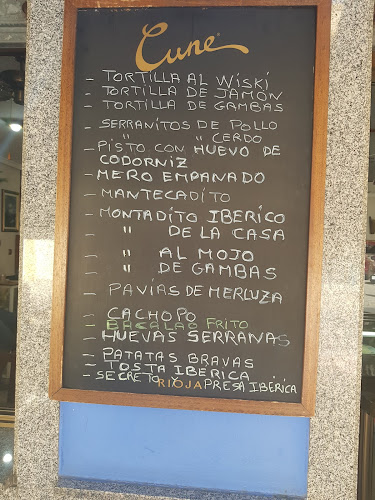 Cune
- TORTILLA AL WISKI
- TORTILLA DE JAMÓN
- TORTILLA DE GAMBAS
- SERRANITOS DE POLLO
" " CERDO
- PISTO CON HUEVO DE
CODORNIZ
- MERO EMPANADO
- MANTECADITO
- MONTADITO IBERICO
- " DE LA CASA
- " AL MOJO
- " DE GAMBAS
- PAVÍAS DE MERLUZA
- CACHOPO
- BACALAO FRITO
- HUEVAS SERRANAS
- PATATAS BRAVAS
- TOSTA IBERICA
- SECRETO Y PRESA IBÉRICA
RIOJA